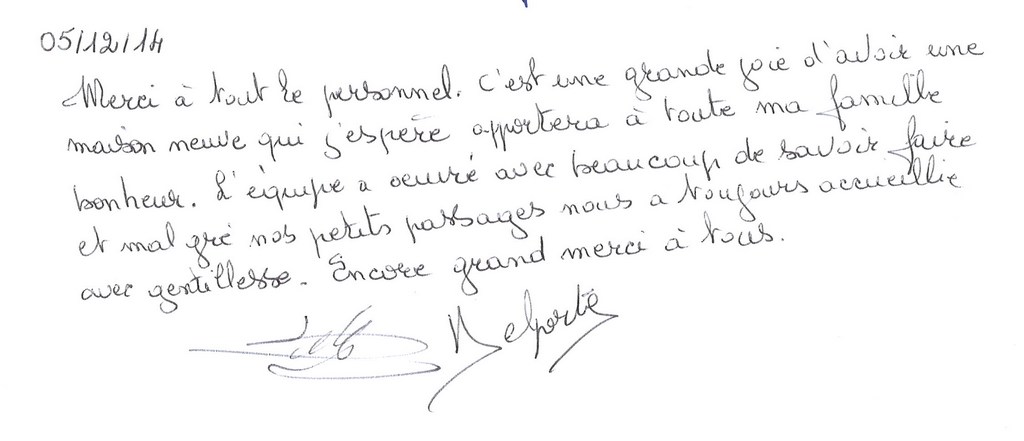 05/12/14
Merci à tout le personnel. C'est une grande joie d'avoir une
maison neuve qui j'espère apportera à toute ma famille
bonheur. L'équipe a oeuvré avec beaucoup de savoir faire
et mal gré nos petits passages nous a toujours accueillie
avec gentillesse. Encore grand merci à tous.
Delporte